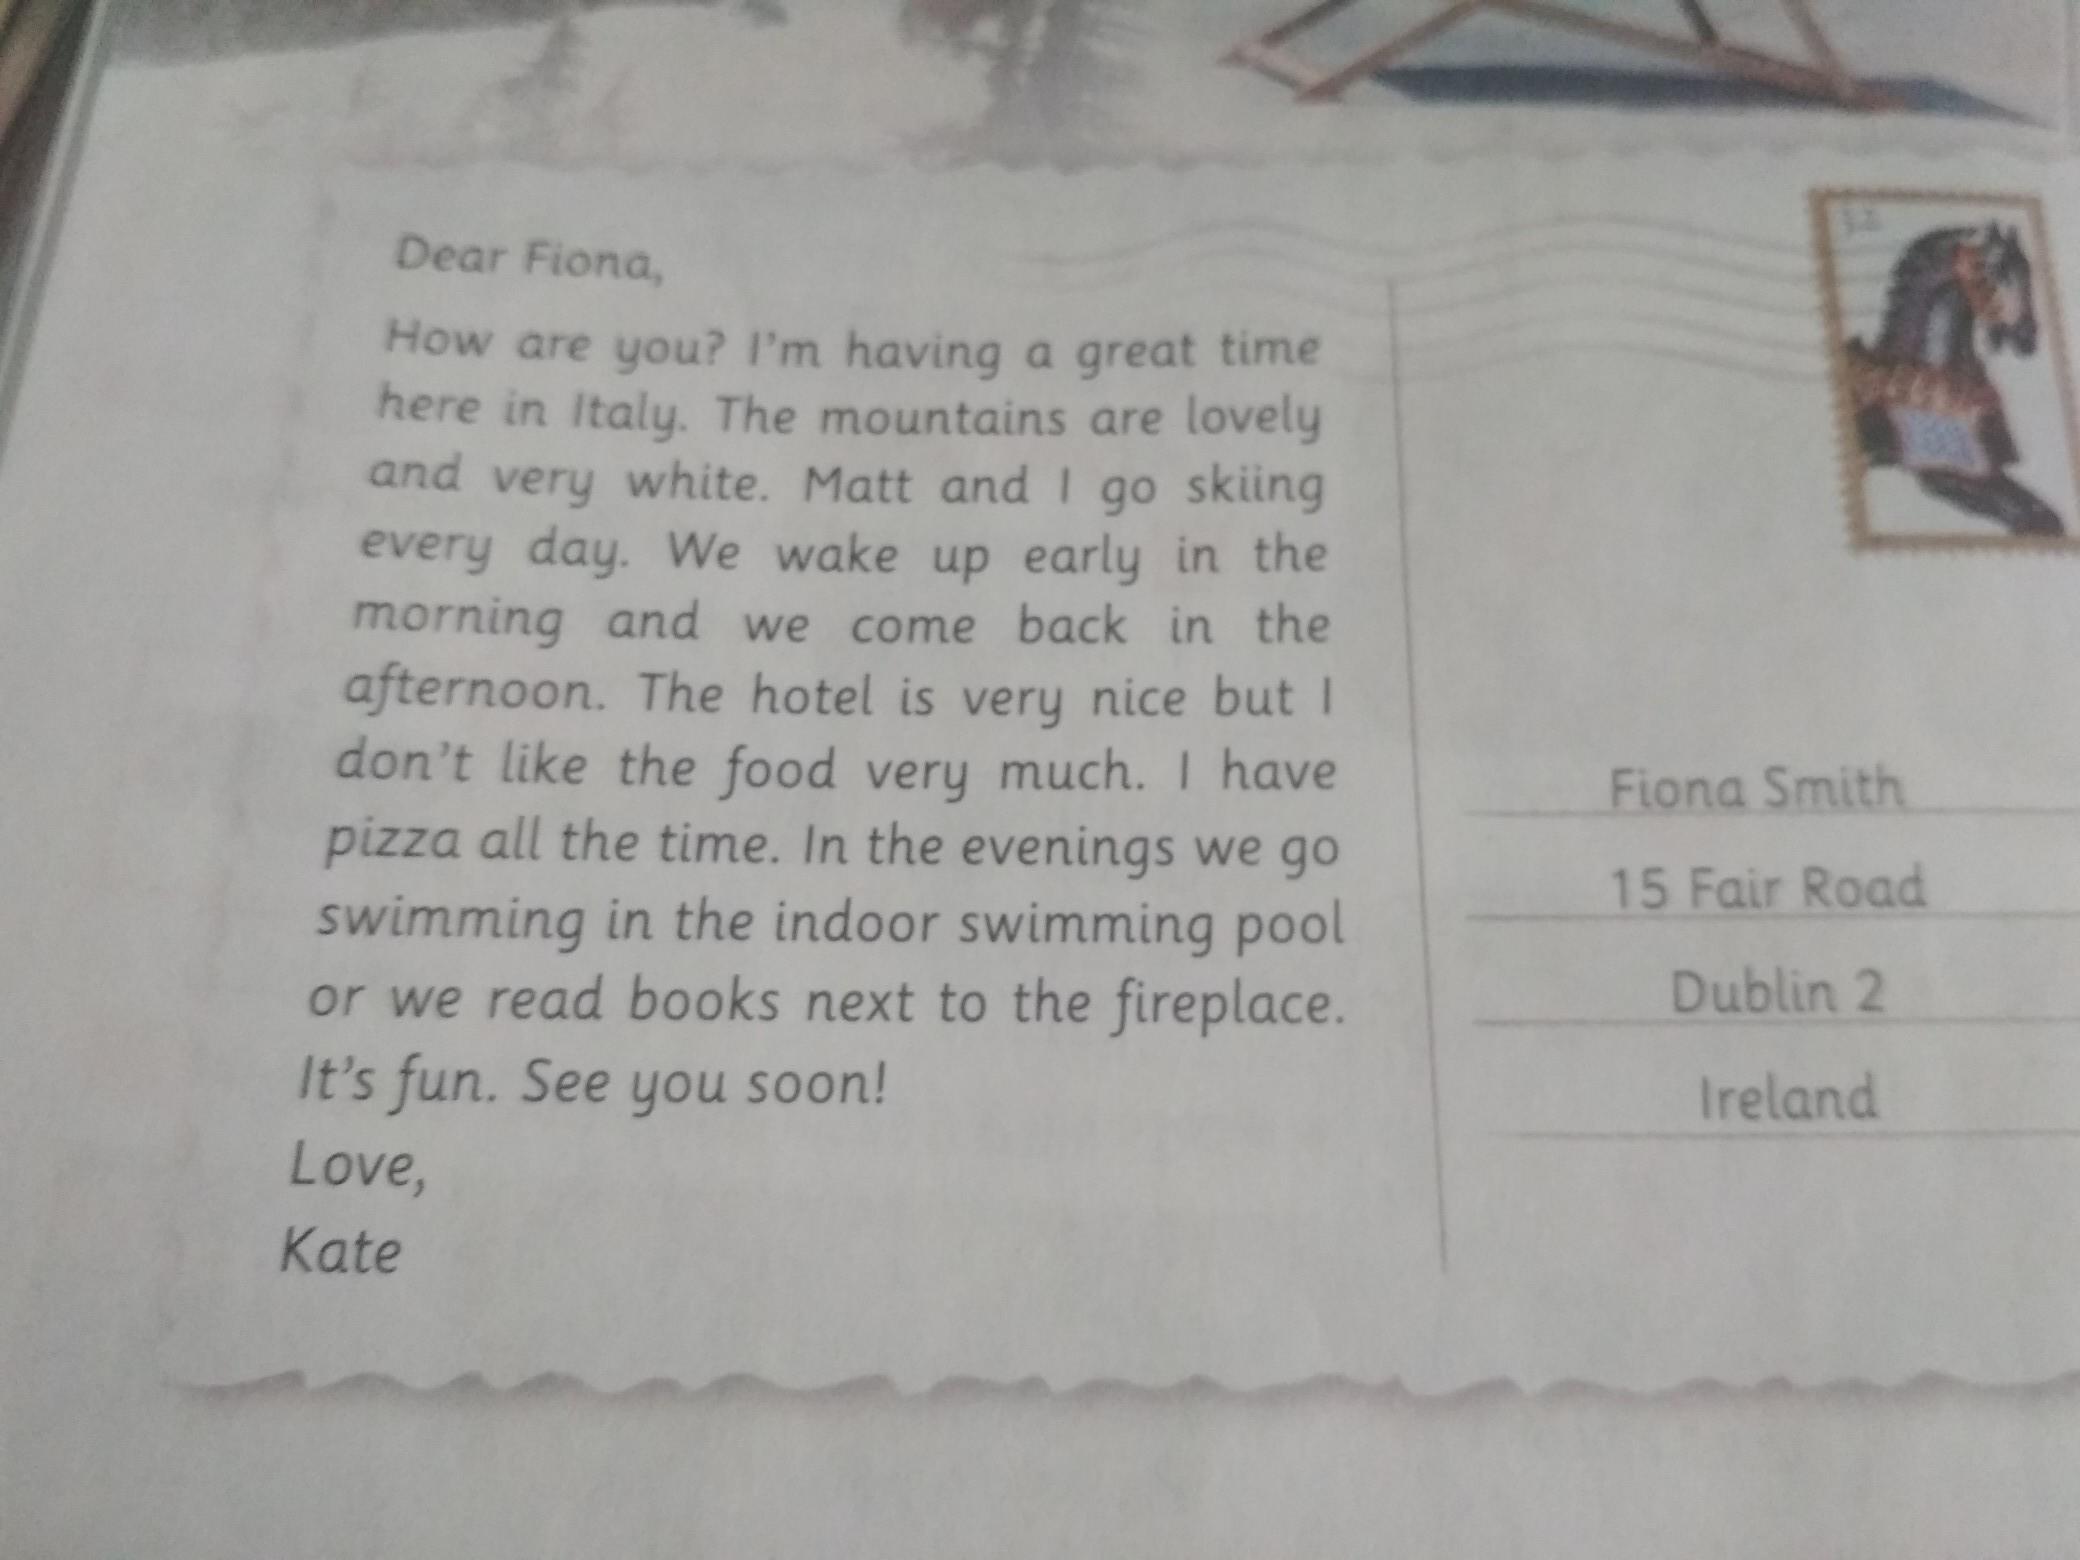 Dear Fiona,
How are you? I'm having a great time
here in Italy. The mountains are lovely
and very white. Matt and I go skiing
every day. We wake up early in the
morning and we come back in the
afternoon. The hotel is very nice but I
don't like the food very much. I have
pizza all the time. In the evenings we go
swimming in the indoor swimming pool
or we read books next to the fireplace.
It's fun. See you soon!
Love,
Kate
Fiona Smith
15 Fair Road
Dublin 2
Ireland